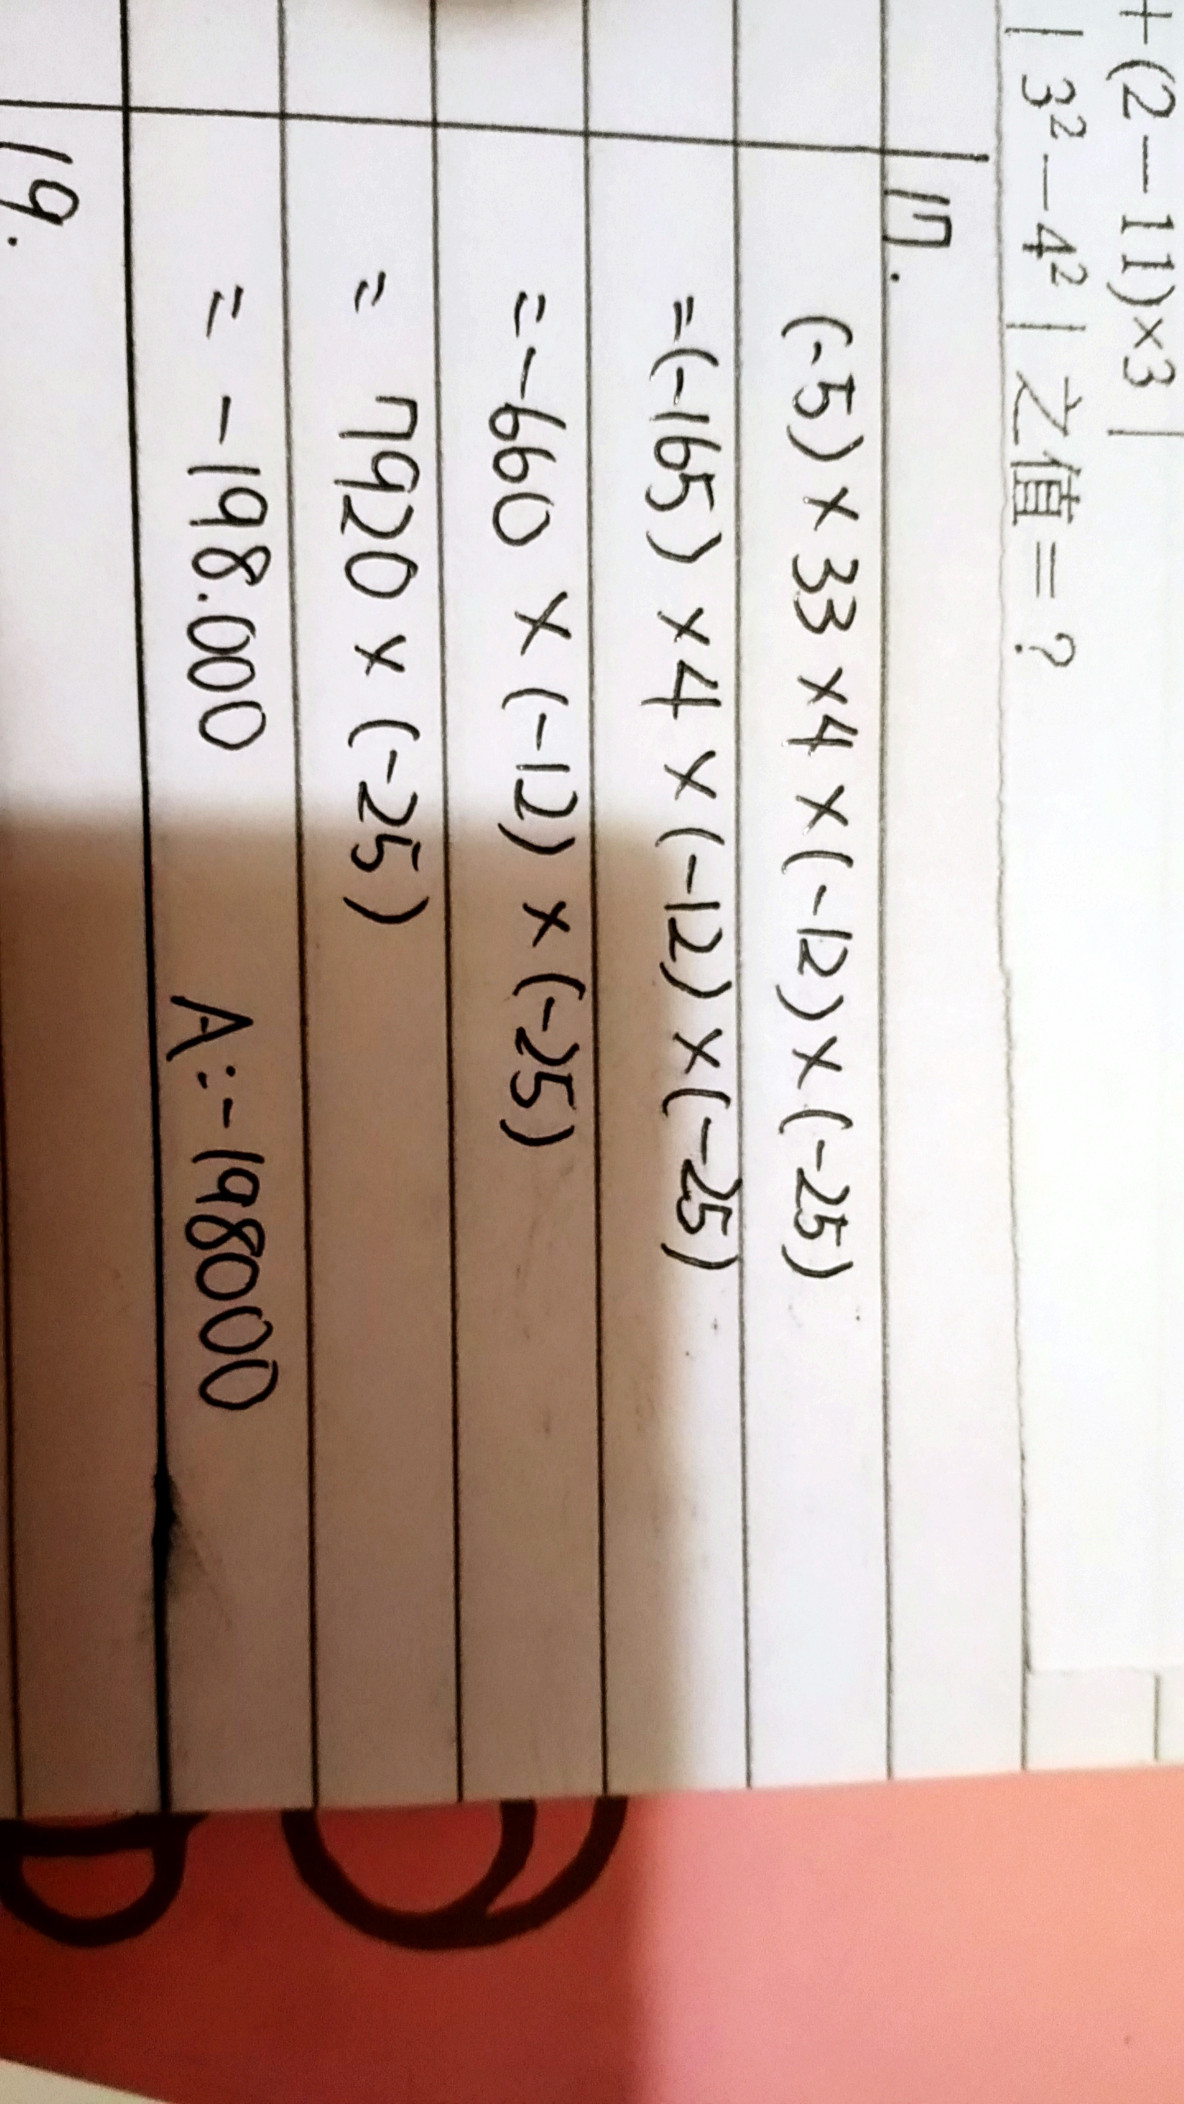 +(2-11)×3|
|3²-4²|之值=?
17.
(-5)×33×4×(-12)×(-25)
=(-165)×4×(-12)×(-25)
=-660×(-12)×(-25)
= 7920×(-25)
= -198.000 A:-198000
19.